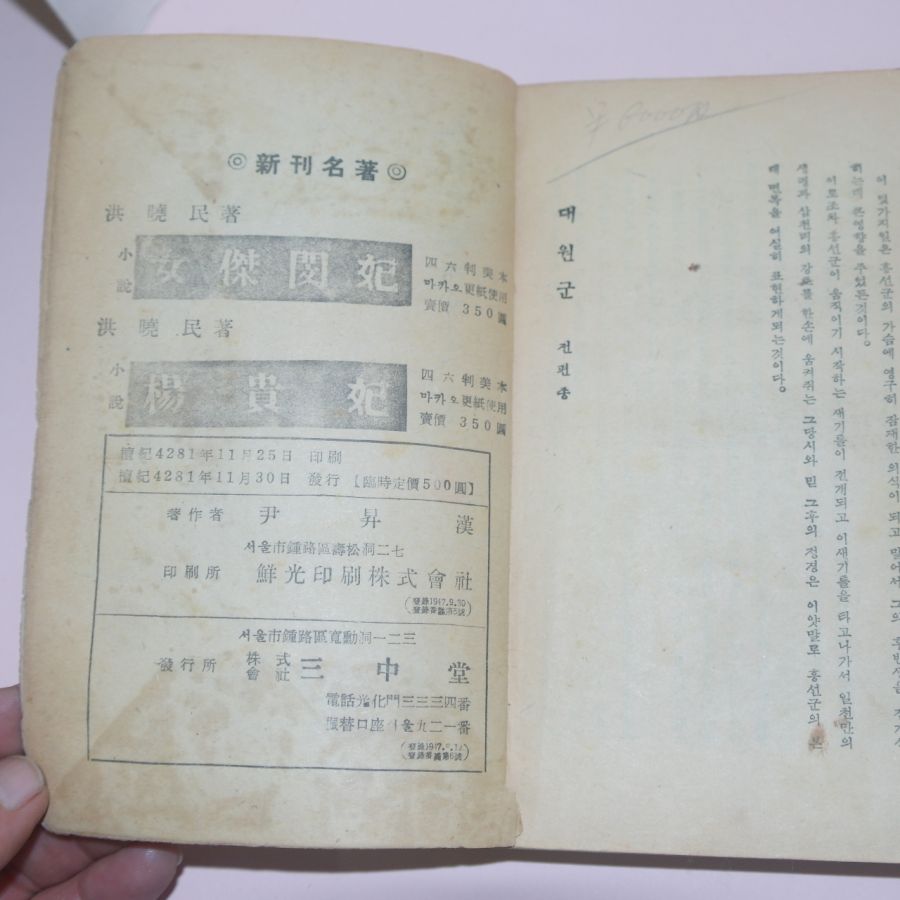 ◎新刊名著◎
洪曉民著
小說 女傑閔妃
四六判美本
마카오更紙使用
賣價 350圓
洪曉民著
小說 楊貴妃
四六判美本
마카오更紙使用
賣價 350圓
檀紀4281年11月25日 印刷
檀紀4281年11月30日 發行 【臨時定價500圓】
著作者 尹昇漢
서울市鍾路區壽松洞二七
印刷所 鮮光印刷株式會社
(登錄1947.9.30
서울市鍾路區寬勳洞一二三
發行所 株式會社 三中堂
電話光化門三三三四番
振替口座서울九二一番
이 몇가지일은 흥선군의 가슴에 영구히 잠재한 의식이 되고 말어서 그의
히는데 큰영향을 주었든것이다。
이로조차 흥선군이 움직이기 시작하는 새기틀이 전개되고 이새기틀을 타고나가서 일천만의
생령과 삼천리의 강토를 한손에 움켜쥐는 그당시와 및 그후의 정경은 이얏말로 흥선군의 본
대 면목을 여실히 표현하게되는것이다。
대원군 전편 종